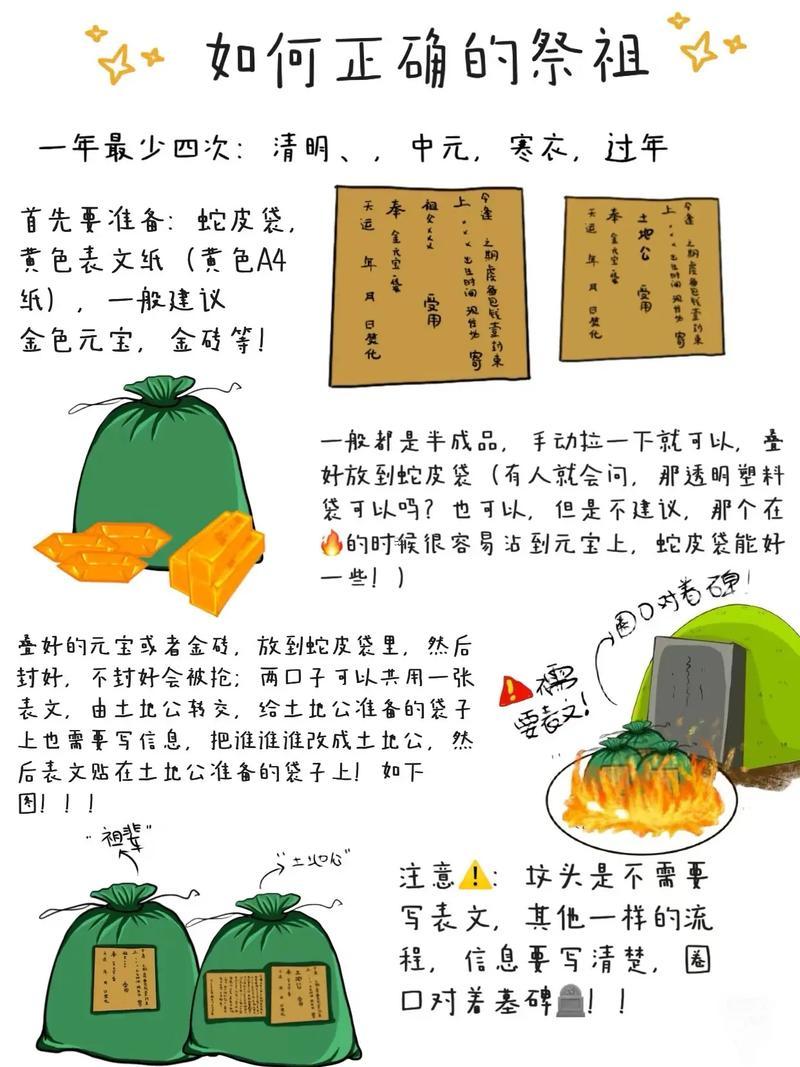 如何正确的祭祖
一年最少四次：清明、，中元，寒衣，过年
首先要准备：蛇皮袋，
黄色表文纸（黄色A4
纸），一般建议
金色元宝，金砖等！
今逢 之期虔备包钱壹封束
上 出生时间 现住为 寄
祖父xxx 受用
奉 金元宝 
天运 年 月 日焚化
今逢 之期虔备包钱壹封束
上 出生时间 现住为 寄
土地公 受用
奉 金元宝 
天运 年 月 日焚化
一般都是半成品，手动拉一下就可以，叠
好放到蛇皮袋（有人就会问，那透明塑料
袋可以吗？也可以，但是不建议，那个在
🔥的时候很容易沾到元宝上，蛇皮袋能好
一些！）
圈口对着碑！
需
要表文！
叠好的元宝或者金砖，放到蛇皮袋里，然后
封好，不封好会被抢；两口子可以共用一张
表文，由土地公转交，给土地公准备的袋子
上也需要写信息，把谁谁谁改成土地公，然
后表文贴在土地公准备的袋子上！如下
图！！！
"祖辈"
"土地公"
注意⚠️：坟头是不需要
写表文，其他一样的流
程，信息要写清楚，圈
口对着墓碑🪦！！